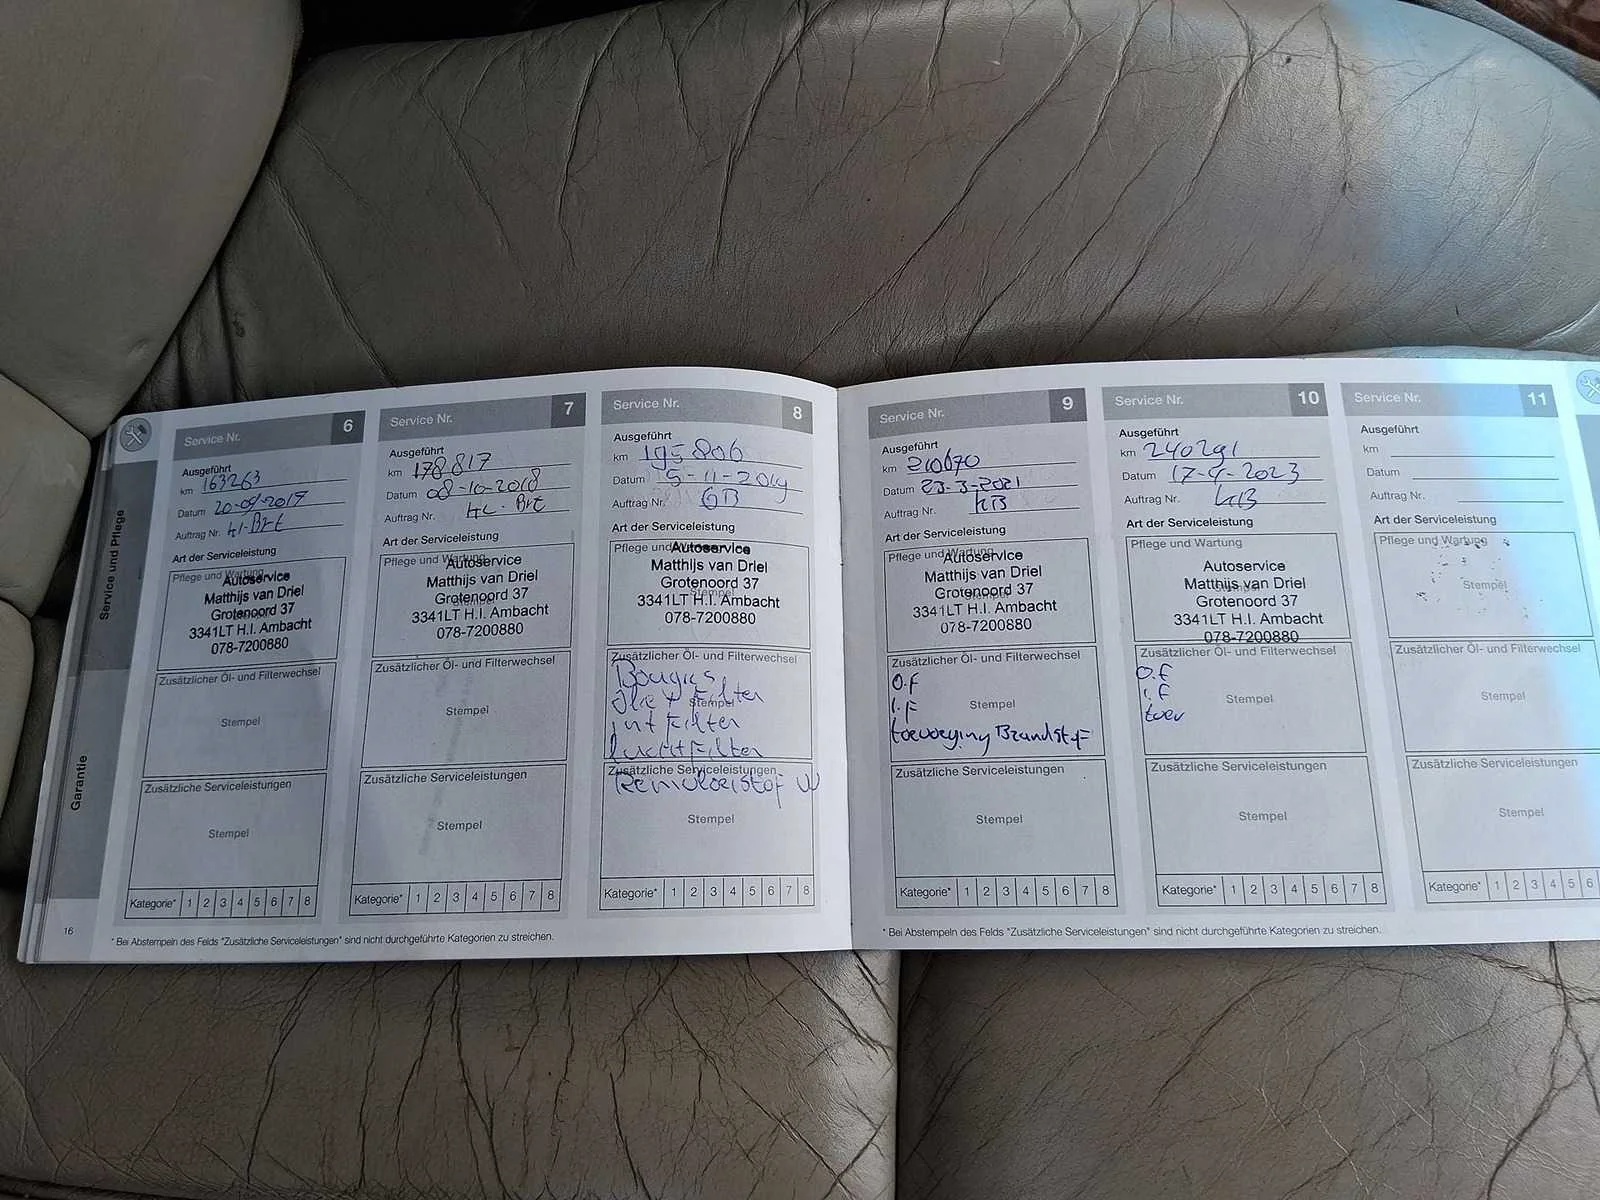 Service und Pflege
Garantie
Service Nr. 6
Ausgeführt
km 163263
Datum 20-09-2017
Auftrag Nr.
Art der Serviceleistung
Pflege und Wartung
Autoservice
Matthijs van Driel
Grotenoord 37
3341LT H.I. Ambacht
078-7200880
Zusätzlicher Öl- und Filterwechsel
Stempel
Zusätzliche Serviceleistungen
Stempel
Kategorie* 1 2 3 4 5 6 7 8
Service Nr. 7
Ausgeführt
km 178817
Datum 08-10-2018
Auftrag Nr.
Art der Serviceleistung
Pflege und Wartung
Autoservice
Matthijs van Driel
Grotenoord 37
3341LT H.I. Ambacht
078-7200880
Zusätzlicher Öl- und Filterwechsel
Stempel
Zusätzliche Serviceleistungen
Stempel
Kategorie* 1 2 3 4 5 6 7 8
Service Nr. 8
Ausgeführt
km 195806
Datum 5-11-2019
Auftrag Nr. GB
Art der Serviceleistung
Pflege und Wartung
Autoservice
Matthijs van Driel
Grotenoord 37
Stempel
3341LT H.I. Ambacht
078-7200880
Zusätzlicher Öl- und Filterwechsel
Bougies
Olie + Filter
Stempel
int Filter
luchtfilter
Zusätzliche Serviceleistungen
Remvloeistof W
Stempel
Kategorie* 1 2 3 4 5 6 7 8
16
* Bei Abstempeln des Felds "Zusätzliche Serviceleistungen" sind nicht durchgeführte Kategorien zu streichen.
Service Nr. 9
Ausgeführt
km 210670
Datum 23-3-2021
Auftrag Nr. KB
Art der Serviceleistung
Pflege und Wartung
Autoservice
Matthijs van Driel
Grotenoord 37
3341LT H.I. Ambacht
078-7200880
Zusätzlicher Öl- und Filterwechsel
O.F
I.F
Stempel
toevoeging Brandstof
Zusätzliche Serviceleistungen
Stempel
Kategorie* 1 2 3 4 5 6 7 8
Service Nr. 10
Ausgeführt
km 240291
Datum 17-4-2023
Auftrag Nr. KB
Art der Serviceleistung
Pflege und Wartung
Autoservice
Matthijs van Driel
Grotenoord 37
3341LT H.I. Ambacht
078-7200880
Zusätzlicher Öl- und Filterwechsel
O.F
I.F
Stempel
toev
Zusätzliche Serviceleistungen
Stempel
Kategorie* 1 2 3 4 5 6 7 8
Service Nr. 11
Ausgeführt
km
Datum
Auftrag Nr.
Art der Serviceleistung
Pflege und Wartung
Stempel
Zusätzlicher Öl- und Filterwechsel
Stempel
Zusätzliche Serviceleistungen
Stempel
Kategorie* 1 2 3 4 5 6
* Bei Abstempeln des Felds "Zusätzliche Serviceleistungen" sind nicht durchgeführte Kategorien zu streichen.